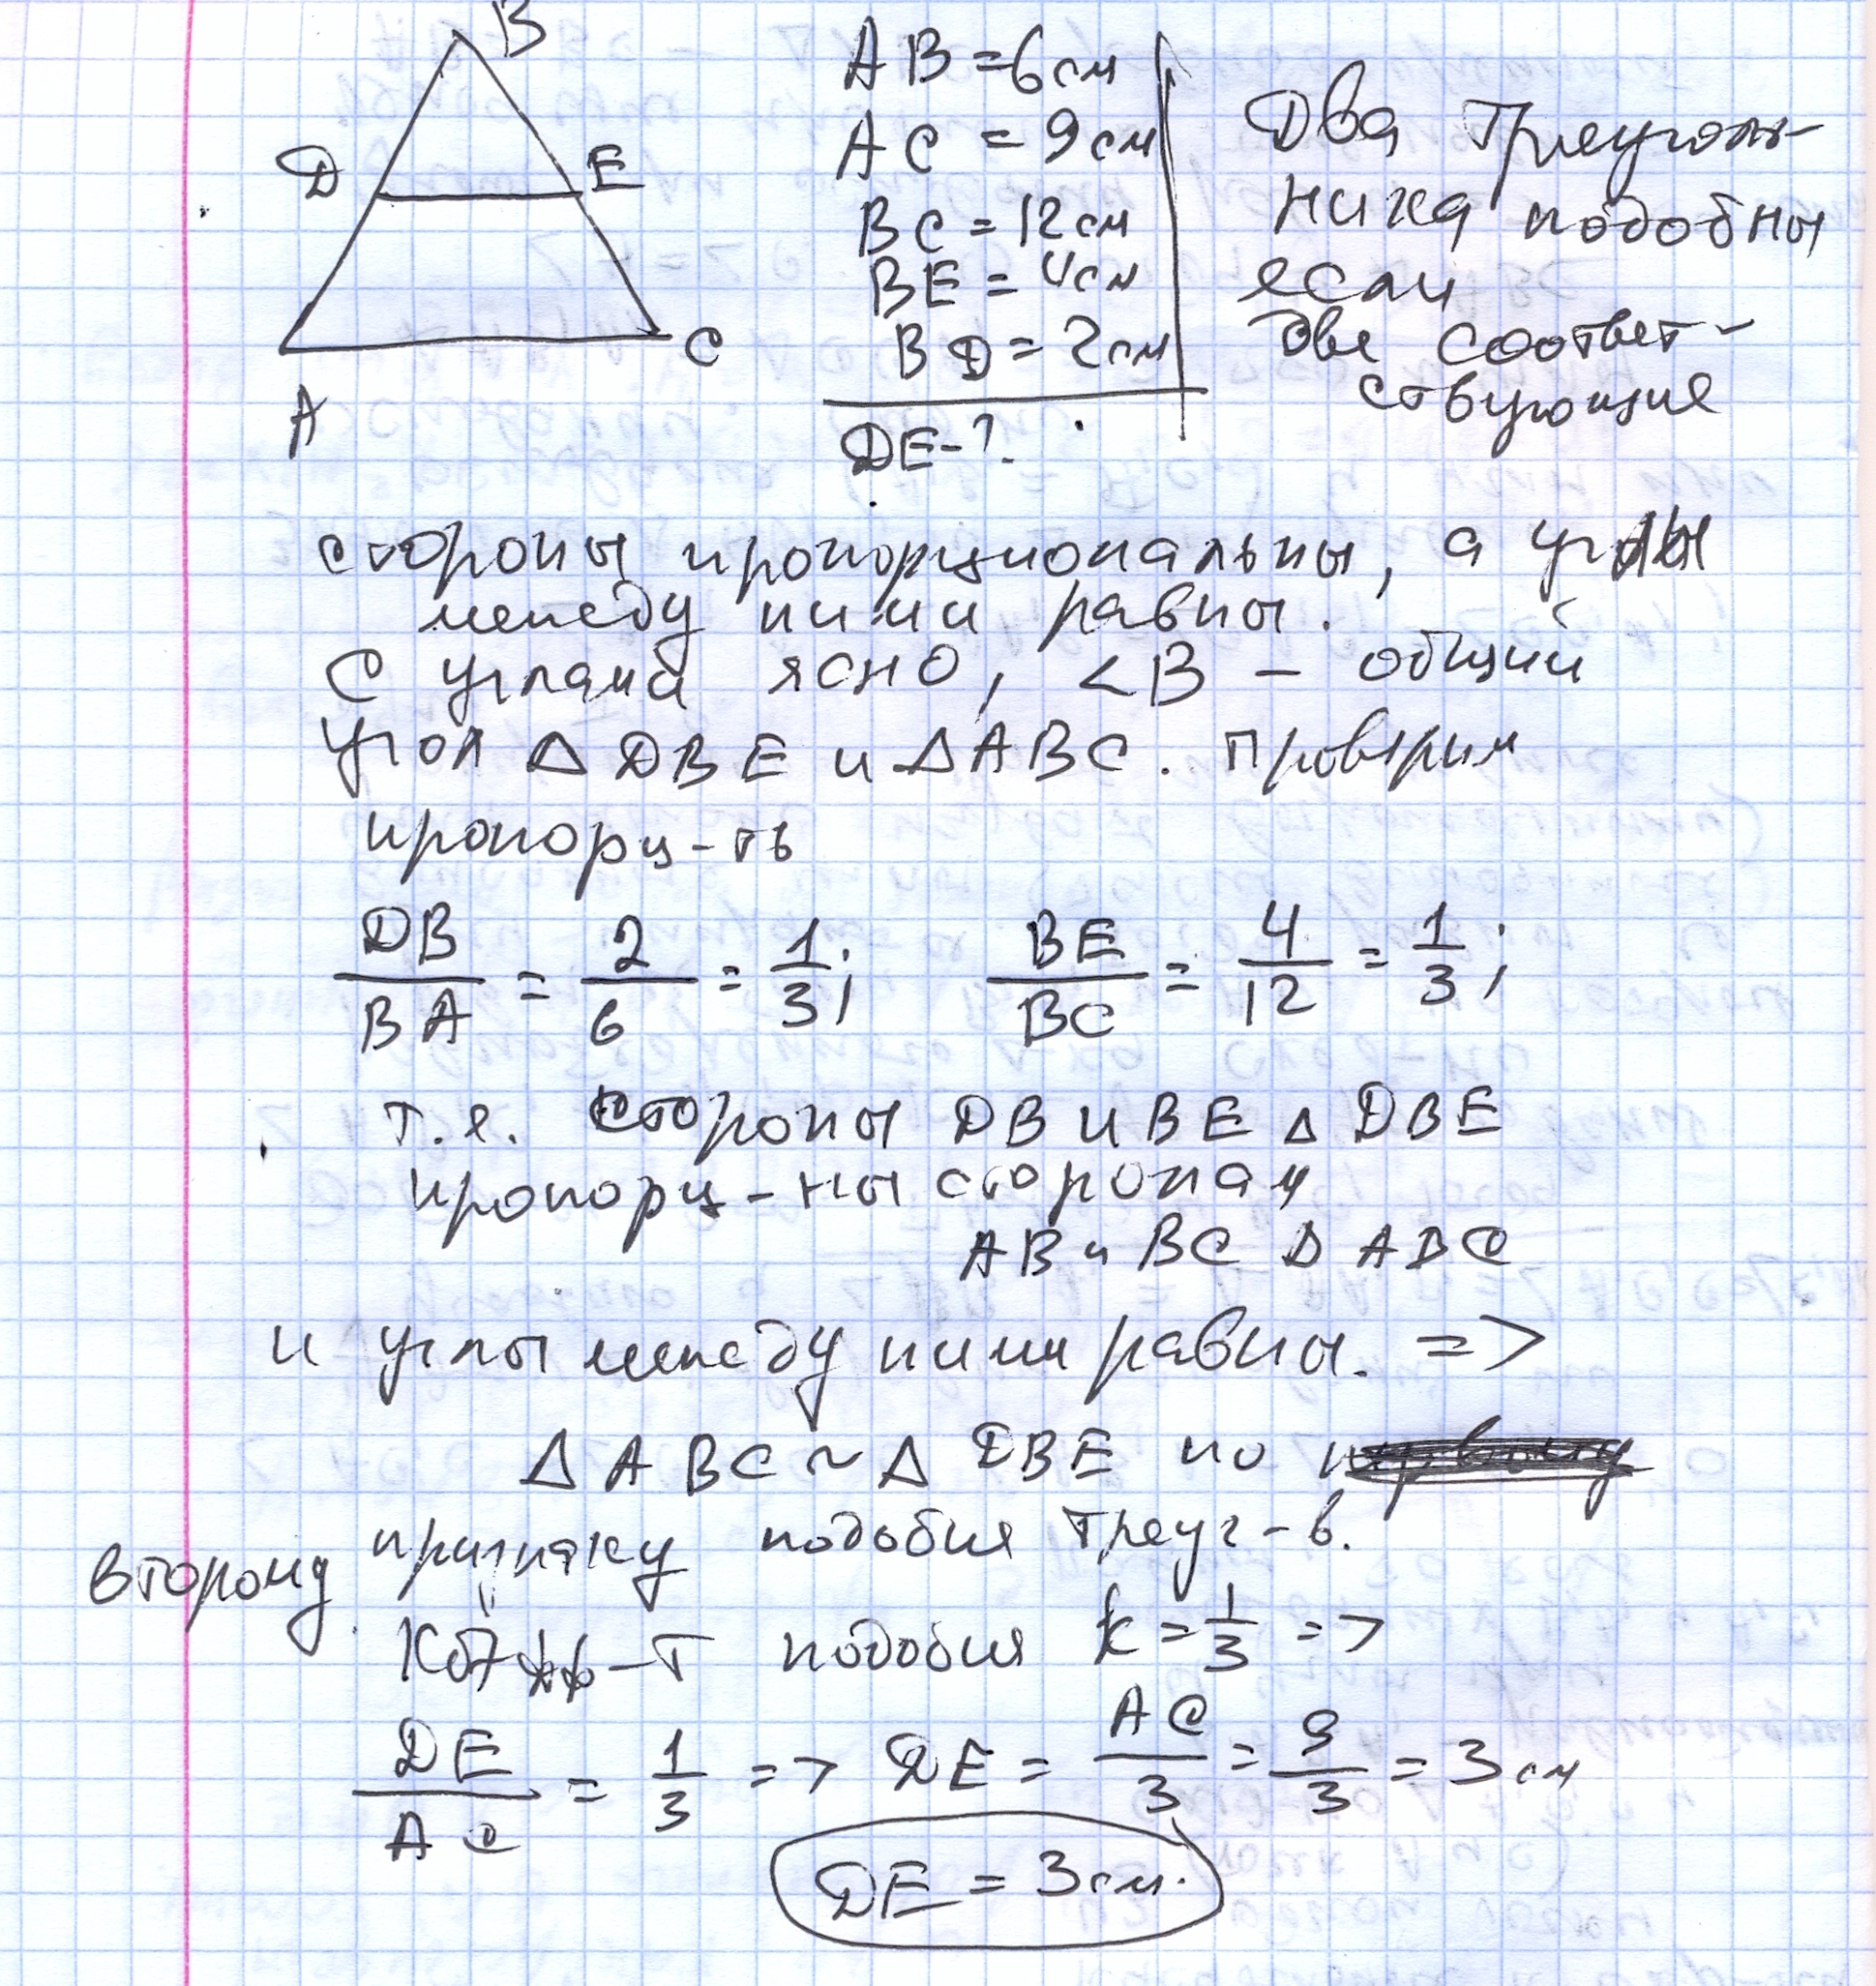 B
D
E
A
C
AB = 6 см
AC = 9 см
BC = 12 см
BE = 4 см
BD = 2 см
DE - ?
Два треуголь-
ника подобны
если
две соответ-
ствующие
стороны пропорциональны, а углы
между ними равны.
С углами ясно, <B - общий
угол Δ DBE и Δ ABC. Проверим
пропорц-ть
DB/BA = 2/6 = 1/3; BE/BC = 4/12 = 1/3;
т.е. стороны DB и BE Δ DBE
пропорц-ны сторонам
AB и BC Δ ABC
и углы между ними равны. =>
Δ ABC ~ Δ DBE по
второму признаку подобия треуг-в.
Коэфф-т подобия k = 1/3 =>
DE/AC = 1/3 => DE = AC/3 = 9/3 = 3 см
DE = 3 см.